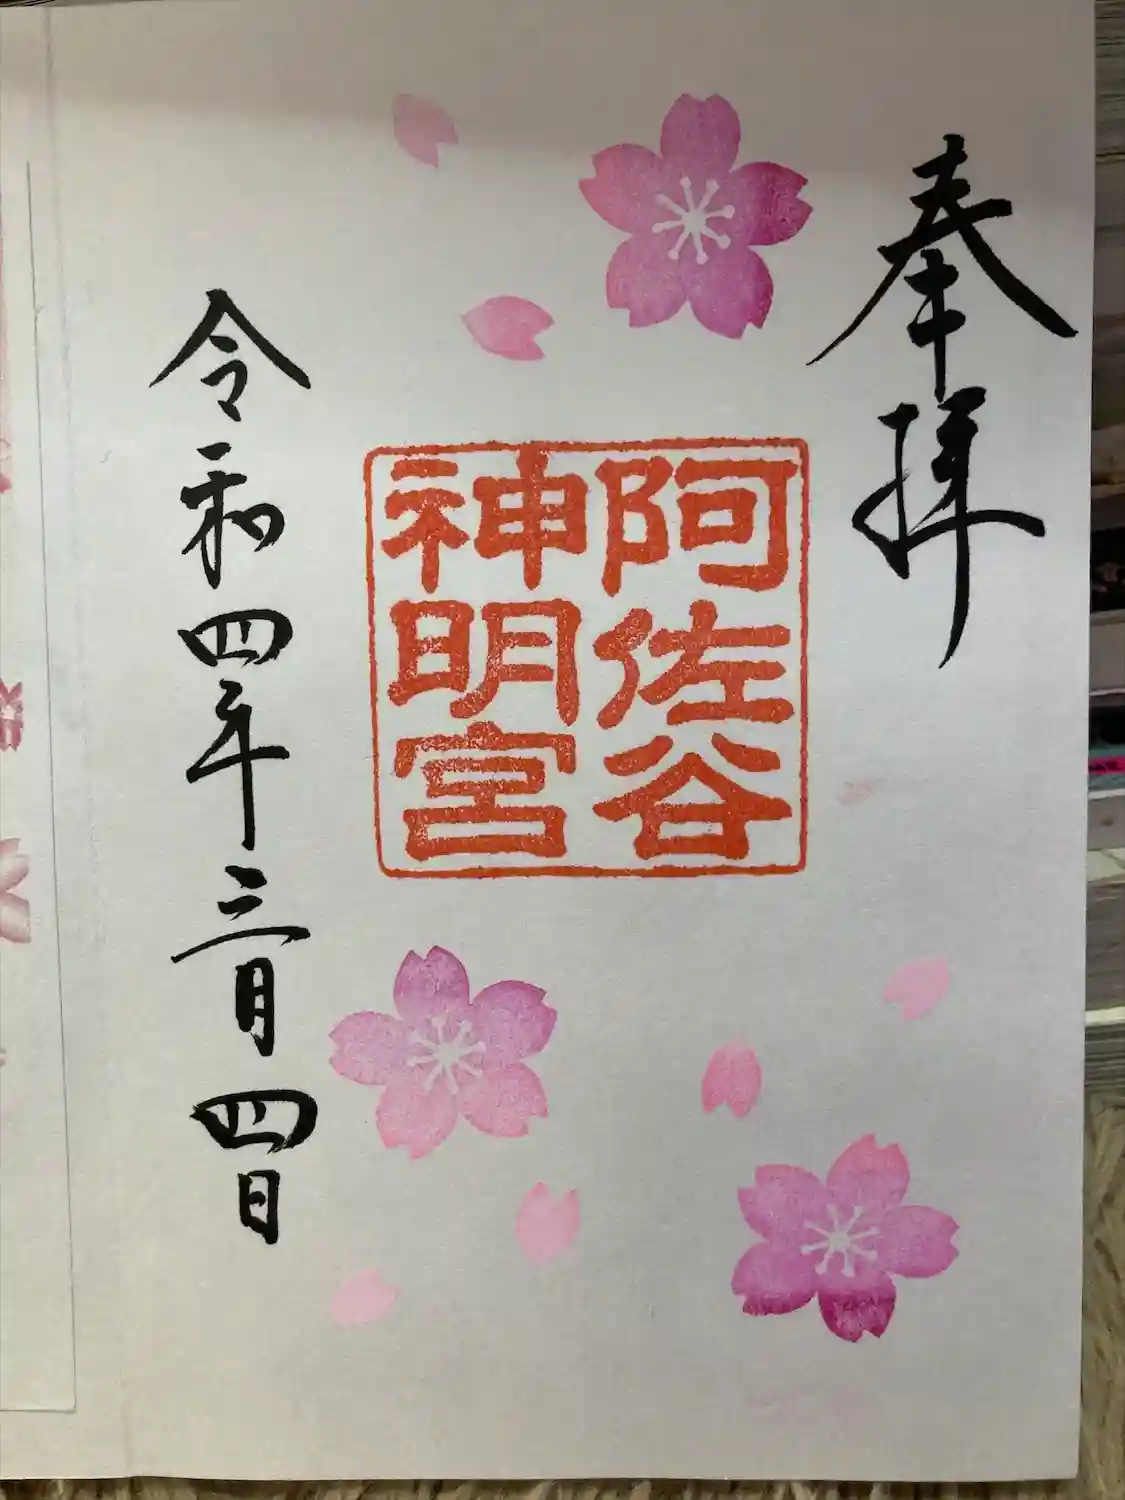 奉拝
阿佐谷
神明宮
令和四年三月四日